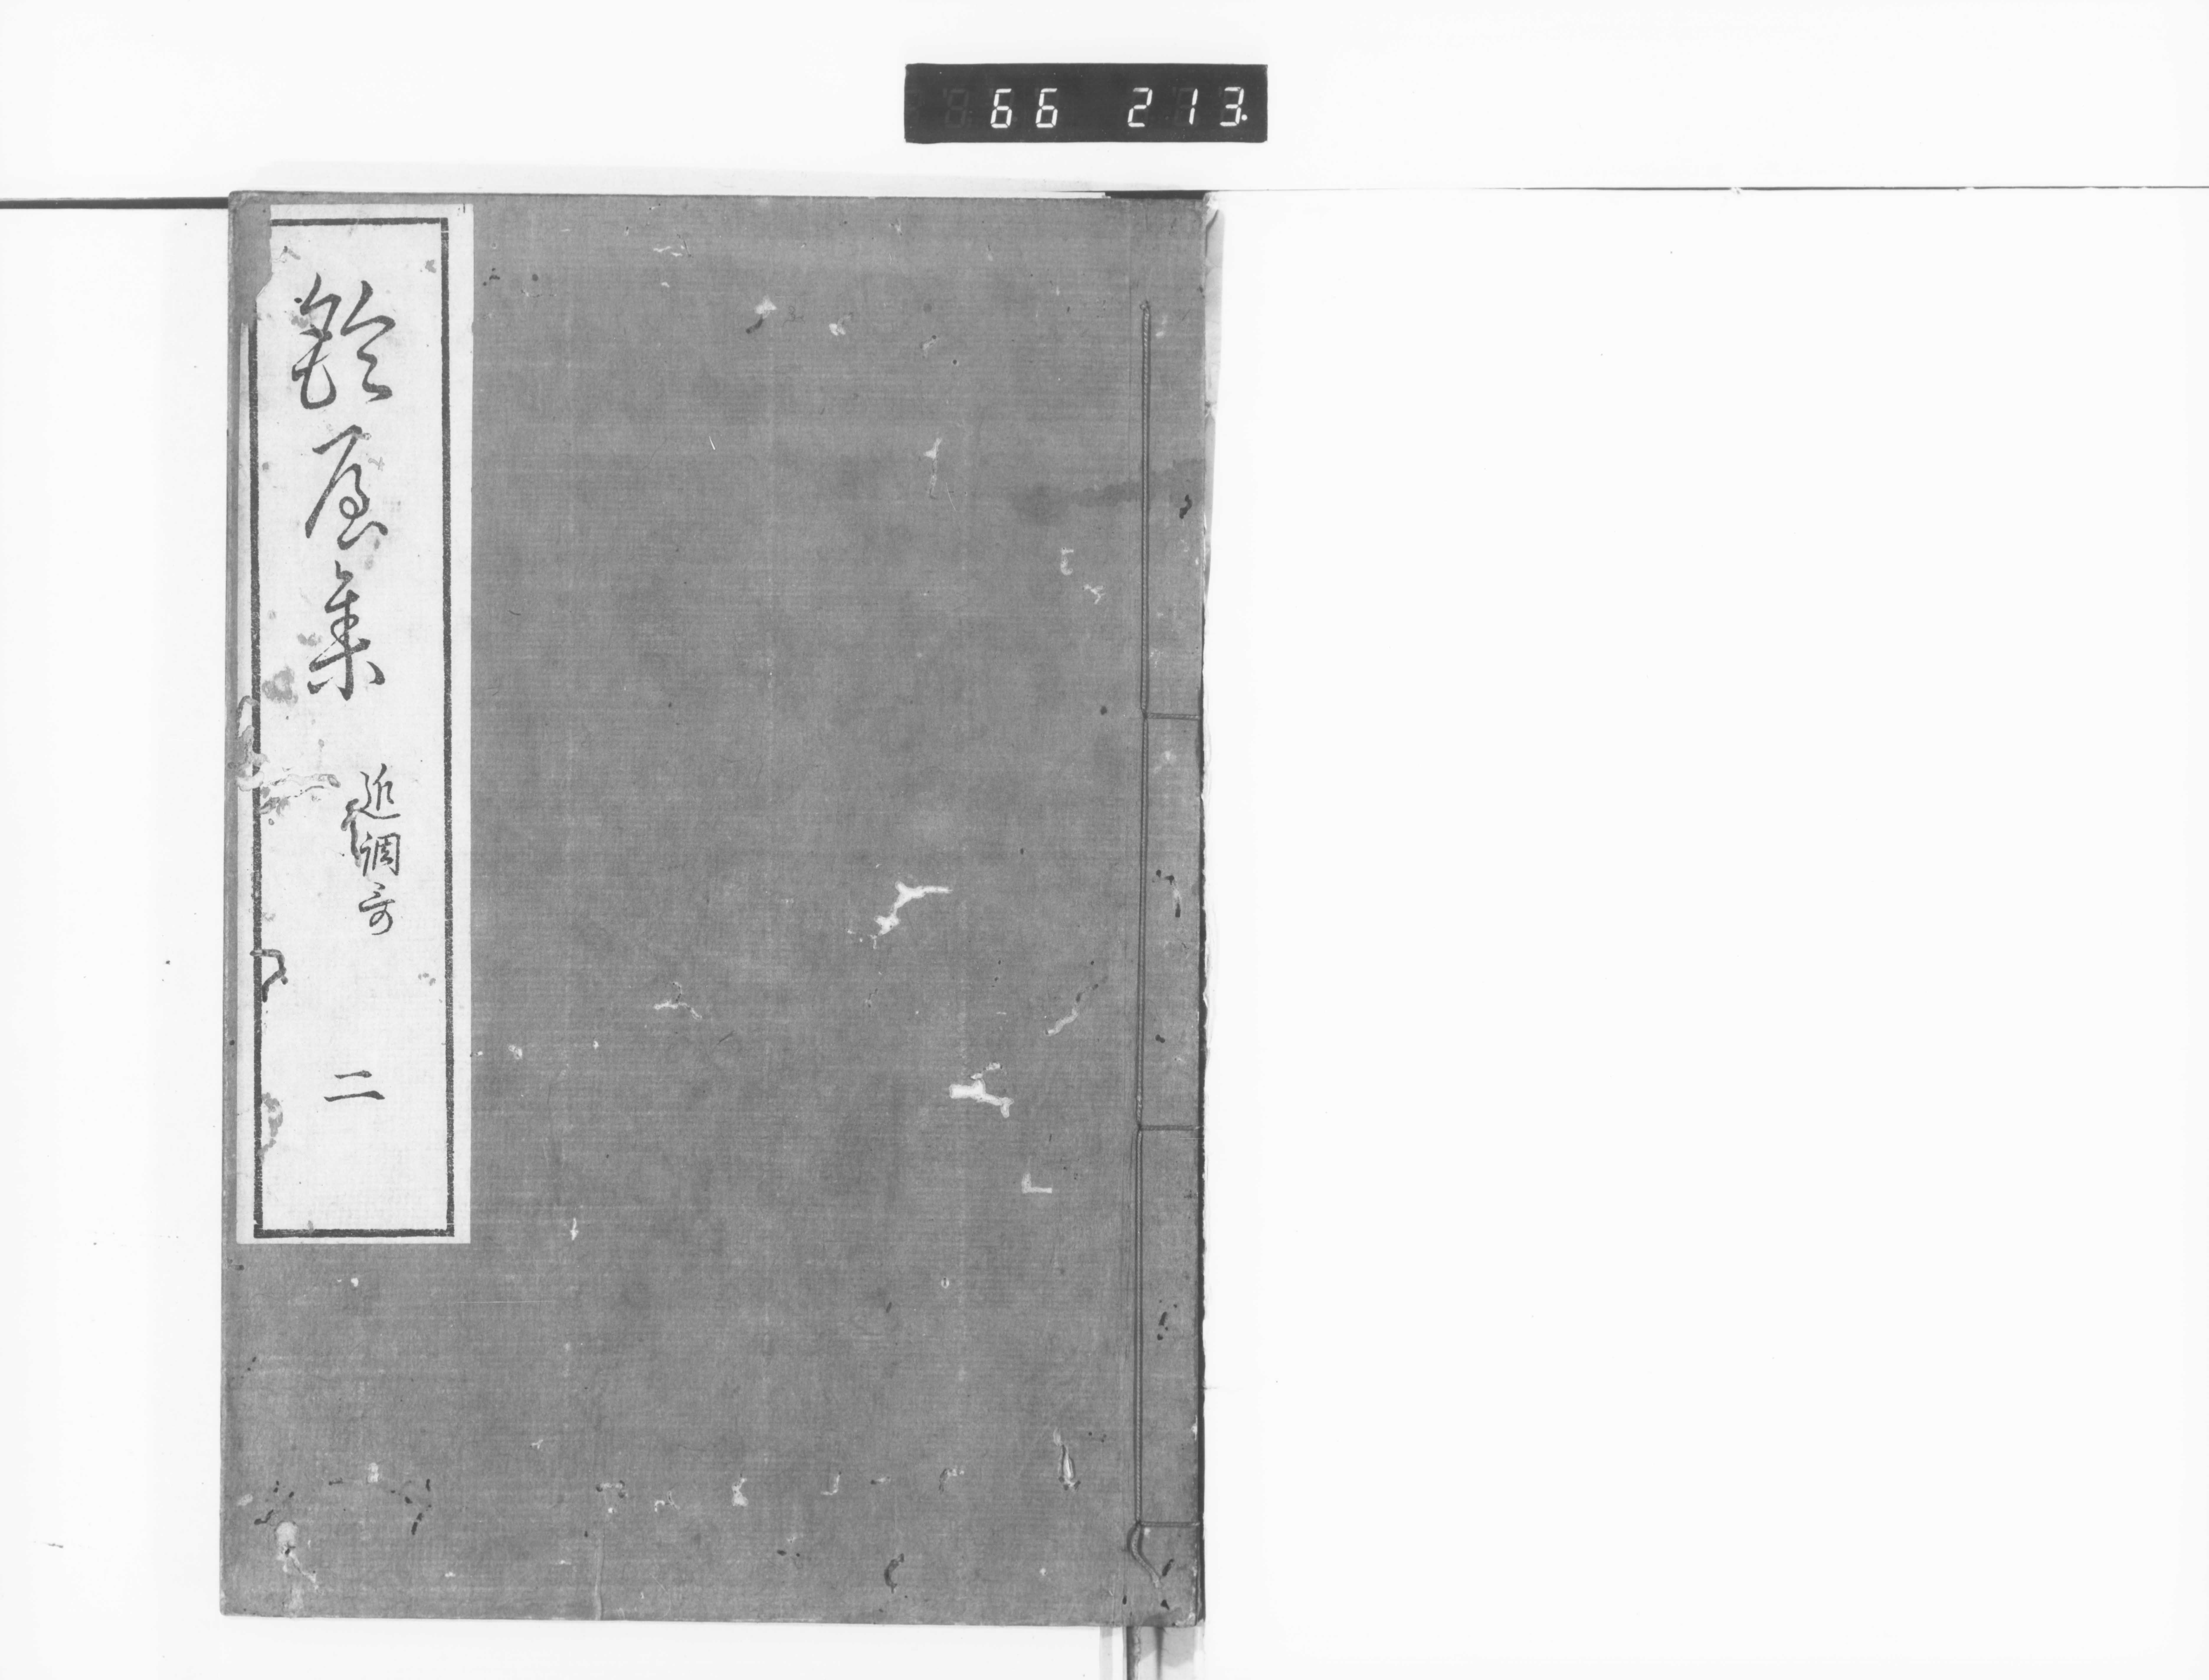 66 213.
鈴屋集
近調哥
二